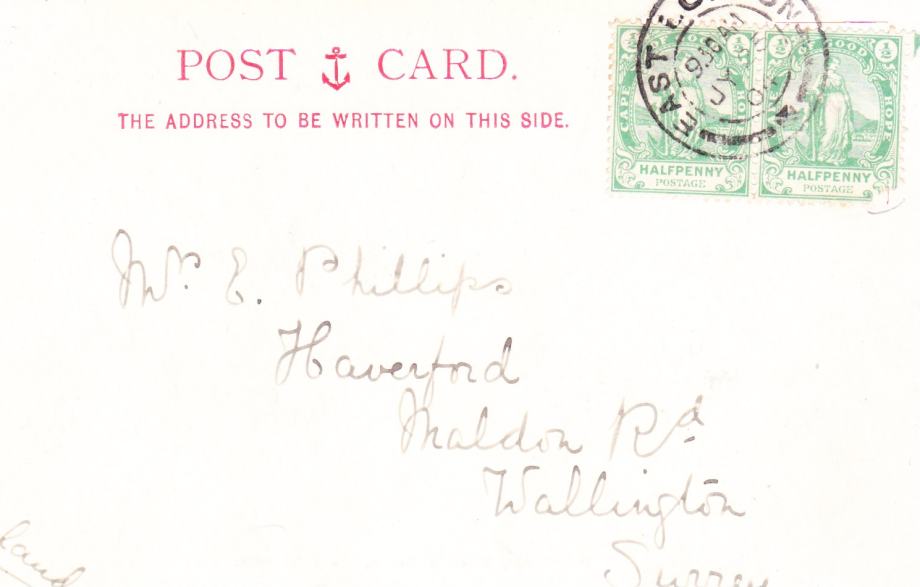 POST CARD.
THE ADDRESS TO BE WRITTEN ON THIS SIDE.
EAST LONDON
9 30 AM
CAPE OF GOOD HOPE
½ ½
HALFPENNY
POSTAGE
CAPE OF GOOD HOPE
½ ½
HALFPENNY
POSTAGE
Mr. E. Phillips
Haverford
Maldon Rd
Wallington
Surrey